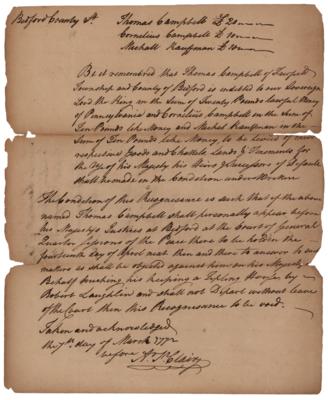 Bedford County Ss. Thomas Campbell £20
Cornelius Campbell £10
Michall Kaufman £10
Be it remembered that Thomas Campbell of
Township and County of Bedford is indebted to our Sovereign
Lord the King in the Sum of Twenty Pounds lawful Money
of Pennsylvania and Cornelius Campbell in the Sum of
Ten Pounds like Money and Michel Kaufman in the
Sum of Ten Pounds like Money to be levied of their
respective Goods and Chattels Lands & Tenements for
the Use of his Majesty his Heirs & Successors if Default
shall be made in the Condition underwritten
The Condition of this Recognizance is such that if the above
named Thomas Campbell shall personally appear before
his Majesty's Justices at Bedford at the Court of General
Quarter Sessions of the Peace there to be holden the
fourteenth day of April next then and there to answer to such
matters as shall be objected against him on his Majesty's
Behalf touching his keeping a Tipling House by
Robert Laughlin and shall not Depart without leave
of the Court then this Recognizance to be void.
Taken and acknowledged
the 7th. day of March 1772
before Ar. St. Clair